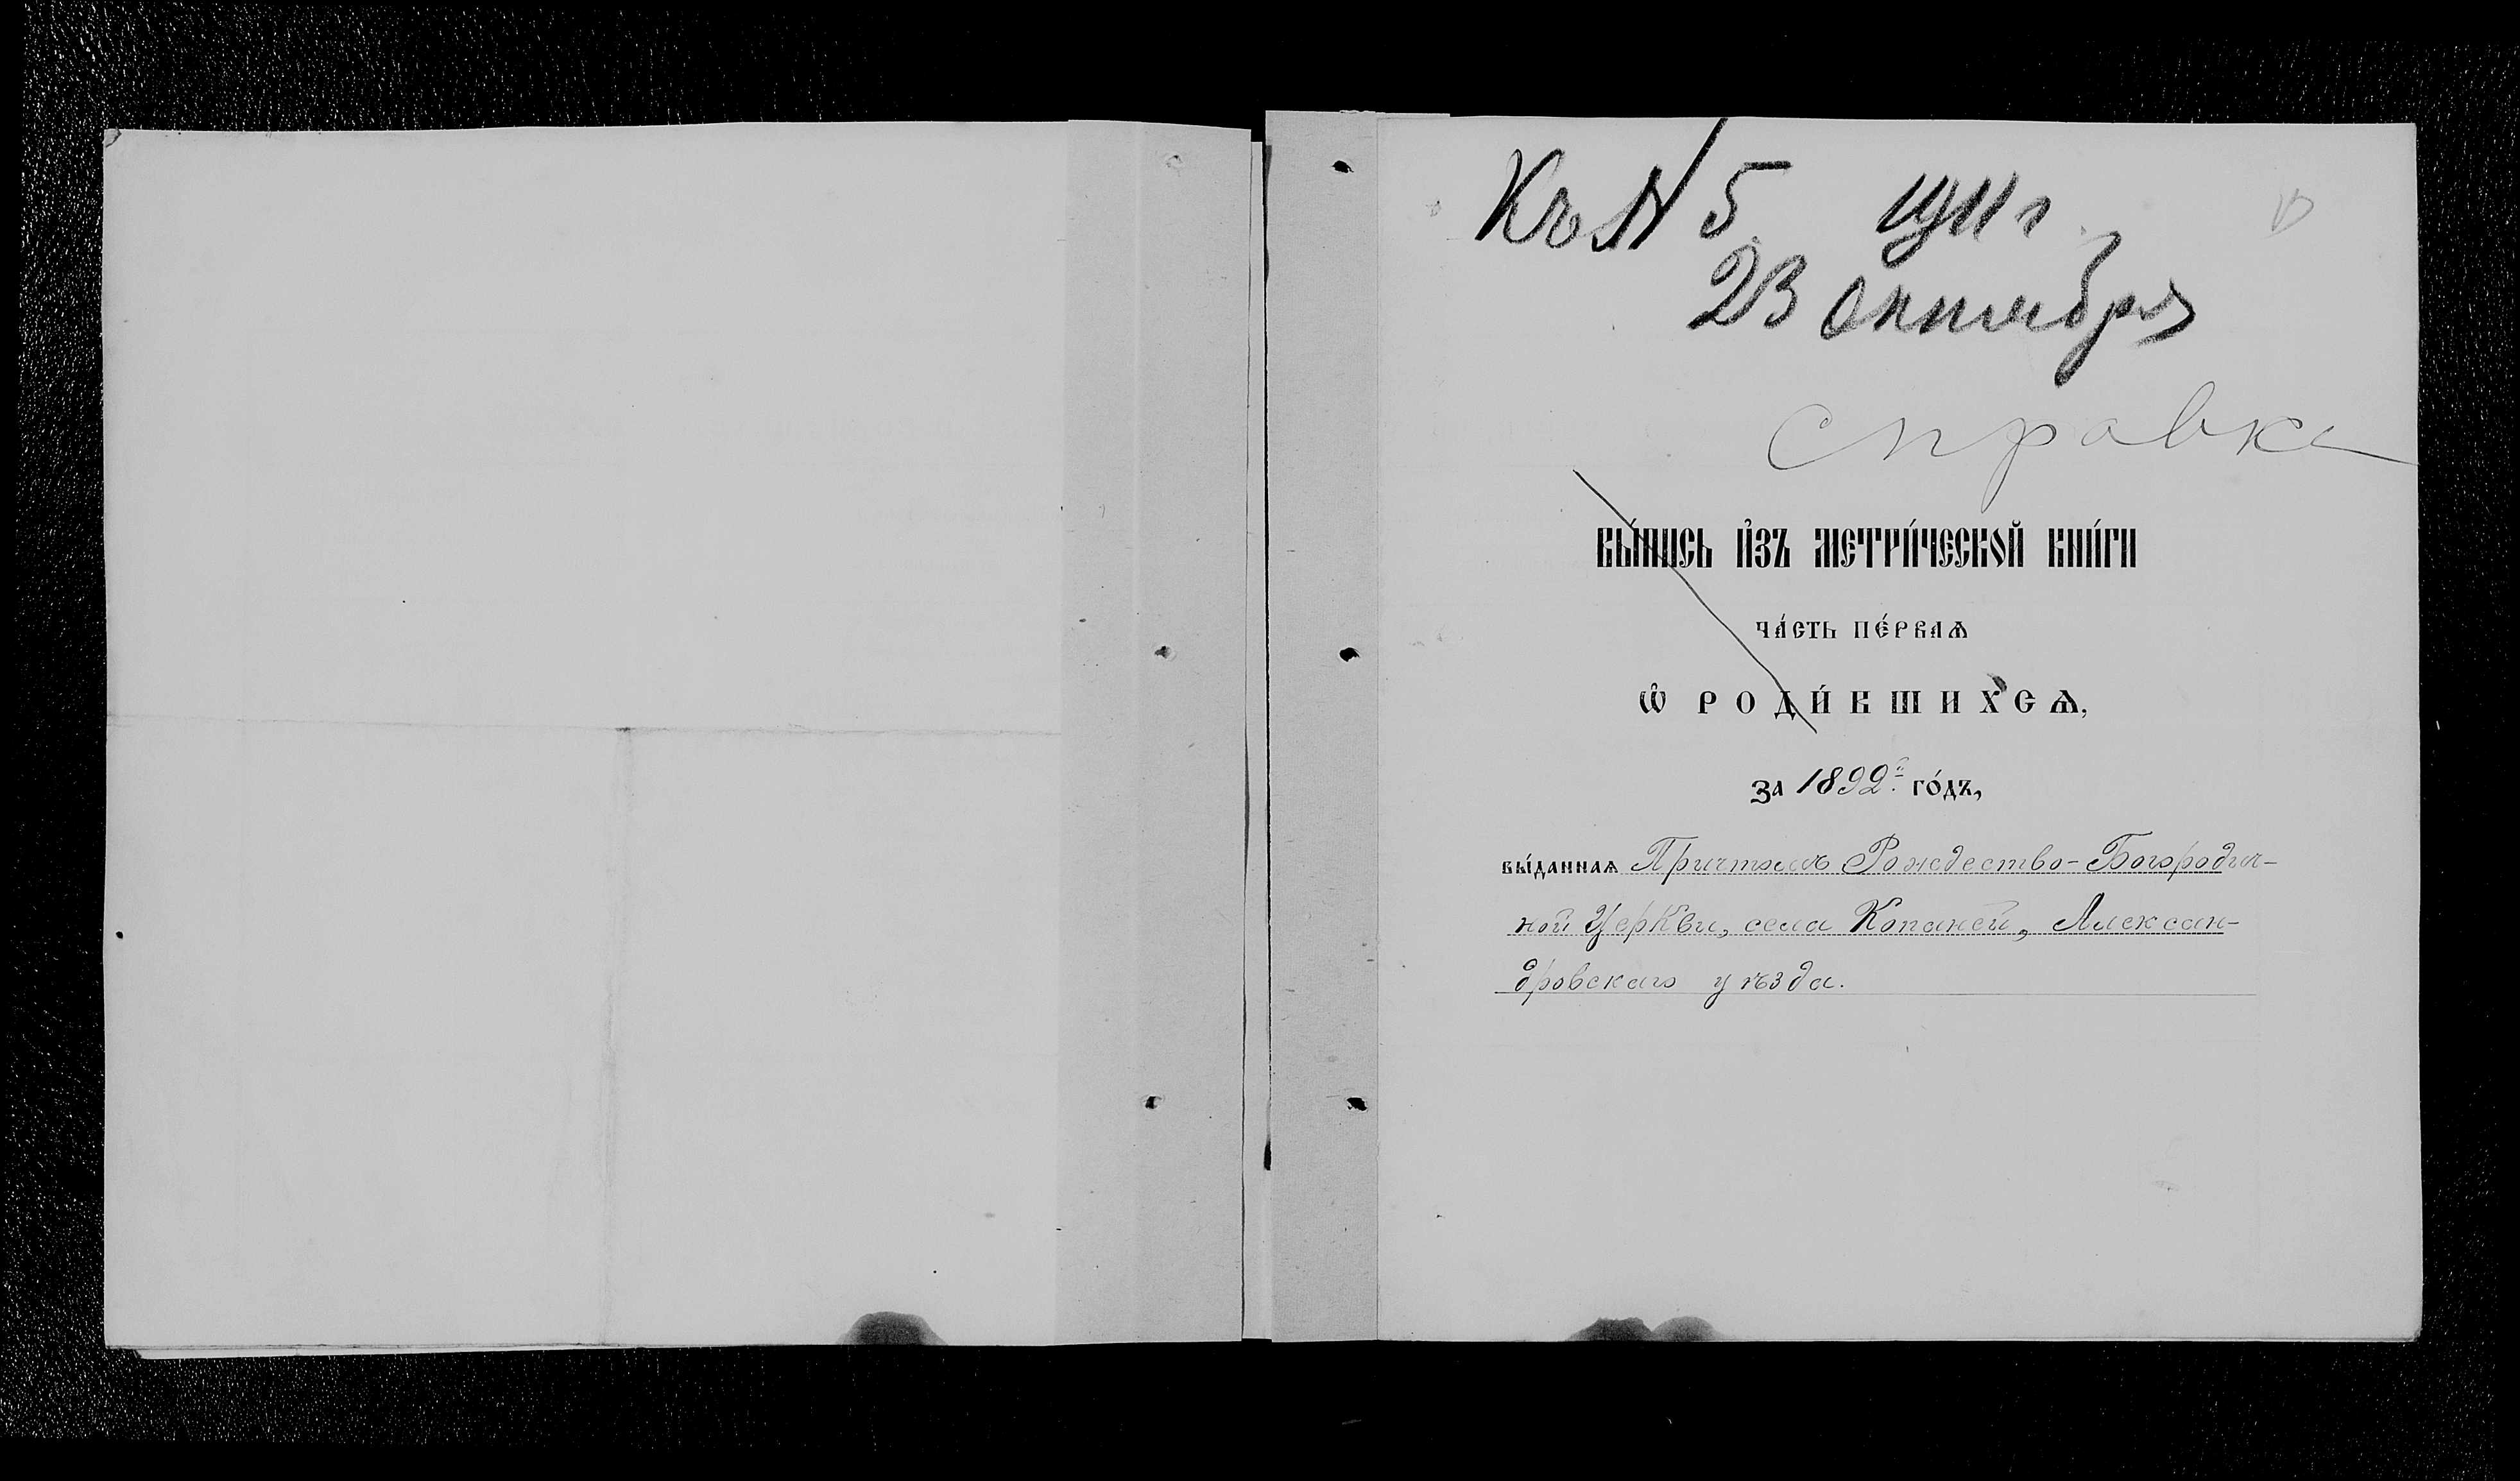 Къ № 5 1911 г.
23 Октября
справка
ВЫ́ПИСЬ И҆́ЗЪ МЕТРИ́ЧЕСКОЙ КНИ́ГИ
ЧА́СТЬ ПЕ́РВАѦ
Ѡ҆ РОДИ́ВШИХСѦ,
за 1892й го́дъ,
вы́даннаѧ Причтомъ Рождество-Богородич-
ной Церкви, села Копаней, Александ-
ровскаго уѣзда.